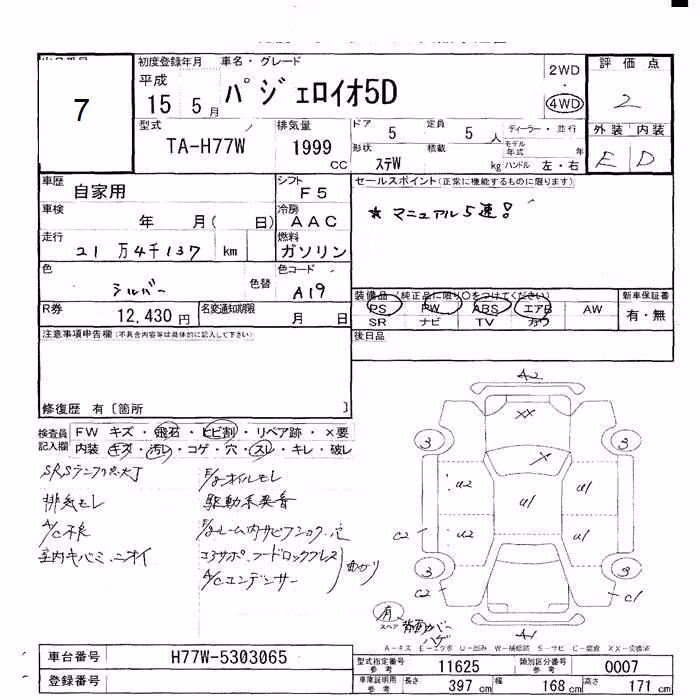 7
初度登録年月 車名・グレード
平成 15 5月 パジェロイオ5D
2WD
・
4WD
評価点
2
外装 内装
E D
型式 排気量 ドア 5 定員 5 人 ディーラー・並行
TA-H77W 1999 CC
形状 ステW 積載 kg モデル年式 年
ハンドル 左・右
車歴 自家用 シフト F5
セールスポイント(正常に機能するものに限ります)
★マニュアル5速!
車検 年 月( 日) 冷房 AAC
走行 21万4千137 km 燃料 ガソリン
色 シルバー 色替 色コード A19
装備品(純正品に限り○をつけてください) 新車保証書
PS PW ABS エアB AW 有・無
SR ナビ TV カワ
R券 12,430円 名変通知期限 月 日
後日品
注意事項申告欄(不具合内容等は具体的に記入して下さい)
修復歴 有〔箇所 〕
検査員記入欄 FW キズ・飛石・ヒビ割・リペア跡・×要
内装・キズ・汚レ・コゲ・穴・スレ・キレ・破レ
SRSランプ点灯
排気モレ
A/C不良
室内キバミ、ニオイ
E/gオイルモレ
駆動系異音
E/gルーム内サビ
コアサポ、フードロックブレス
A/Cコンデンサー
曲がり
A2
XX
X
3 3
U2 U1 U1
C2 U2 U1
3 3
C2 C1
A1
有
スペア
背面カバーハゲ
A-キズ E-エクボ U-凹み W-補修跡 S-サビ C-腐食 XX-交換済
車台番号 H77W-5303065
登録番号
型式指定番号 参考 11625 類別区分番号 参考 0007
車庫証明用 参考 長さ 397 cm 幅 168 cm 高さ 171 cm